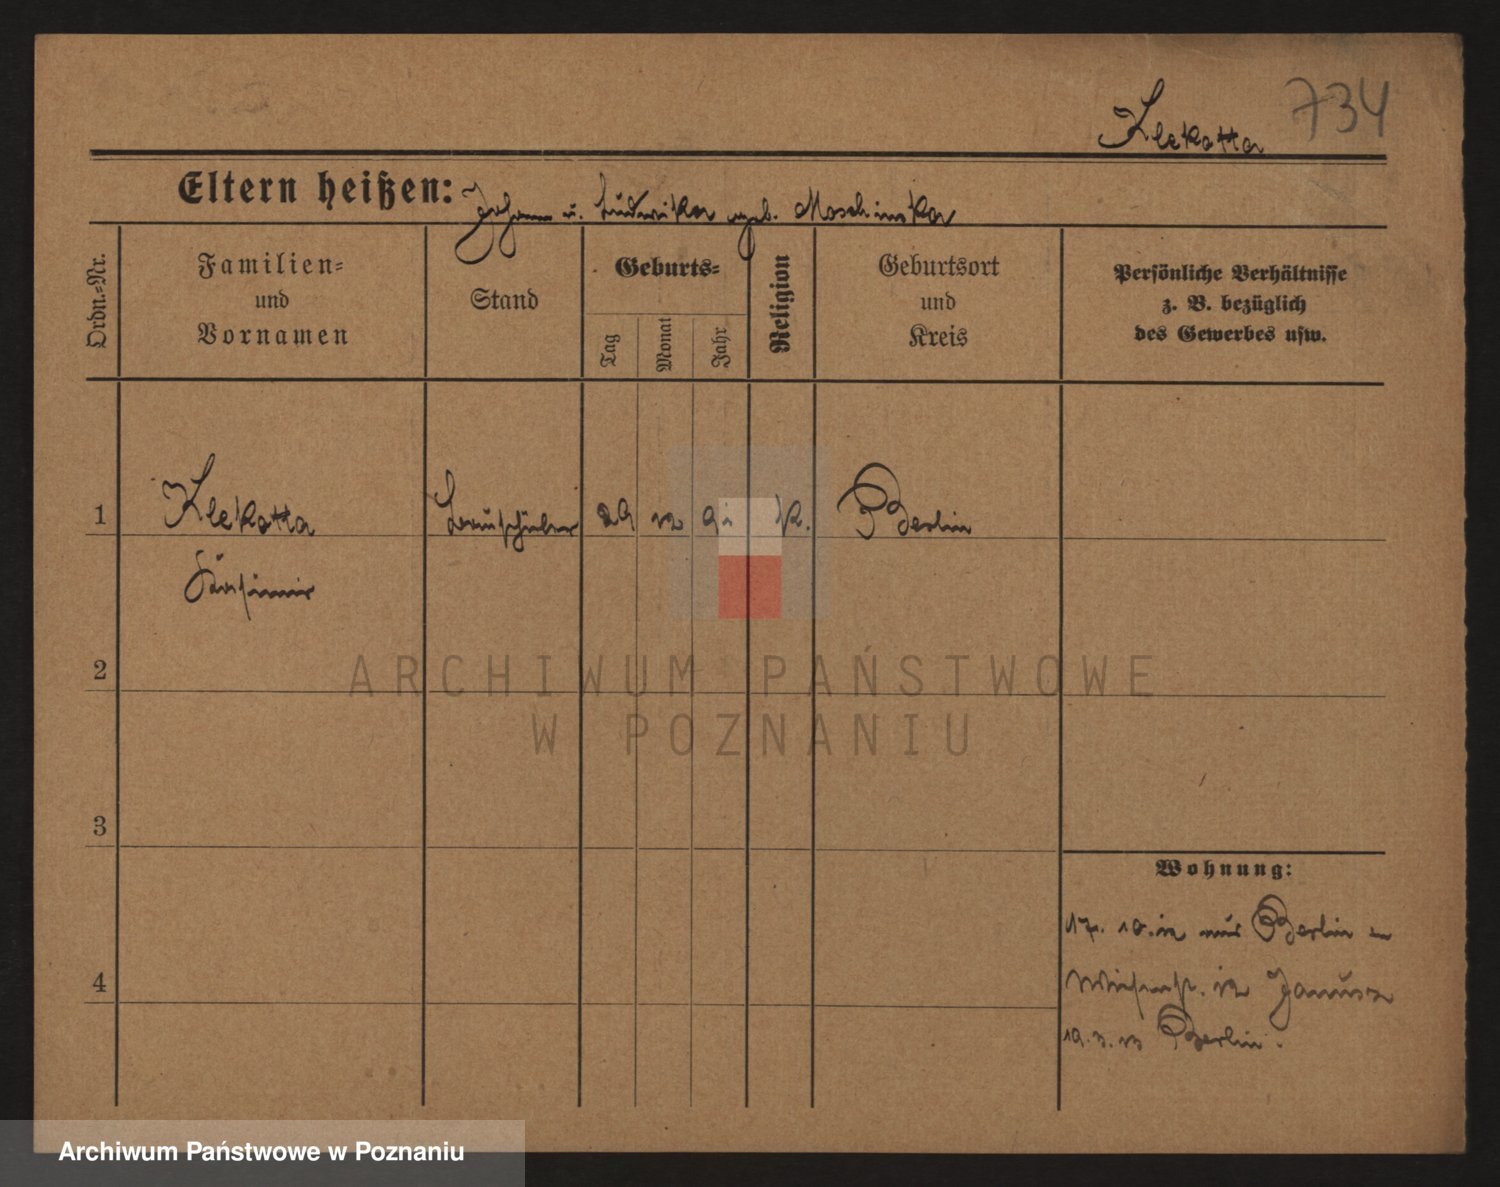 Klekotta 734
Eltern heißen: Johann u. Ludwika geb. Moschinska
Ordn.-Nr.
Familien-
und
Vornamen
Stand
Geburts-
Tag
Monat
Jahr
Religion
Geburtsort
und
Kreis
Persönliche Verhältnisse
z. B. bezüglich
des Gewerbes usw.
1 Klekotta 29 12 91 k. Berlin
Kasimir
2
3
4
Wohnung:
17. 10. 12 aus Berlin
Wiesenstr. 12 Janusz
19. 3. 13 Berlin.
ARCHIWUM PAŃSTWOWE
W POZNANIU
Archiwum Państwowe w Poznaniu